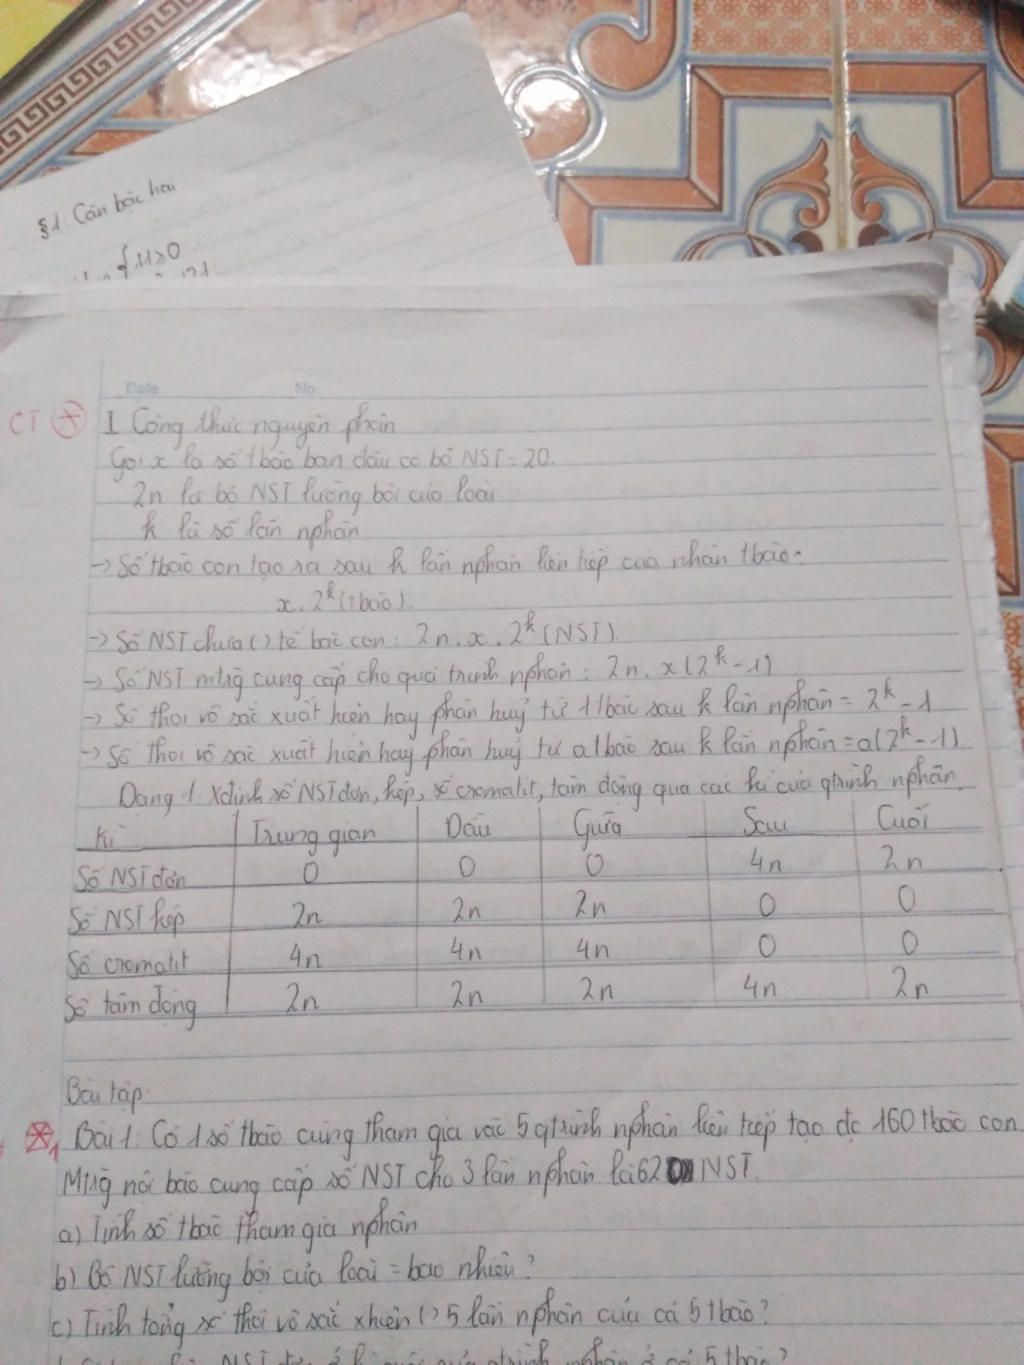 §1. Căn bậc hai
Date No.
CT * I Công thức nguyên phân
Gọi x là số tbào ban đầu có bộ NST = 20.
2n là bộ NST lưỡng bội của loài
k là số lần nphân
→ Số tbào con tạo ra sau k lần nphân liên tiếp của nhân tbào:
x. 2^k (tbào).
→ Số NST chứa () tế bào con: 2n. x. 2^k (NST)
→ Số NST mtrg cung cấp cho quá trình nphân: 2n. x (2^k - 1)
→ Số thoi vô sắc xuất hiện hay phân huỷ từ 1 tbào sau k lần nphân = 2^k - 1
→ Số thoi vô sắc xuất hiện hay phân huỷ từ a tbào sau k lần nphân = a(2^k - 1)
Dạng 1. Xđịnh số NST đơn, kép, số cromatit, tâm động qua các kì của qtrình nphân.
Kì Trung gian Đầu Giữa Sau Cuối
Số NST đơn 0 0 0 4n 2n
Số NST kép 2n 2n 2n 0 0
Số cromatit 4n 4n 4n 0 0
Số tâm động 2n 2n 2n 4n 2n
Bài tập:
Bài 1: Có 1 số tbào cùng tham gia vào 5 qtrình nphân liên tiếp tạo đc 160 tbào con.
Mtrg nội bào cung cấp số NST cho 3 lần nphân là 620 NST.
a) Tính số tbào tham gia nphân
b) Bộ NST lưỡng bội của loài = bao nhiêu?
c) Tính tổng số thoi vô sắc xhiện () 5 lần nphân của cả 5 tbào?